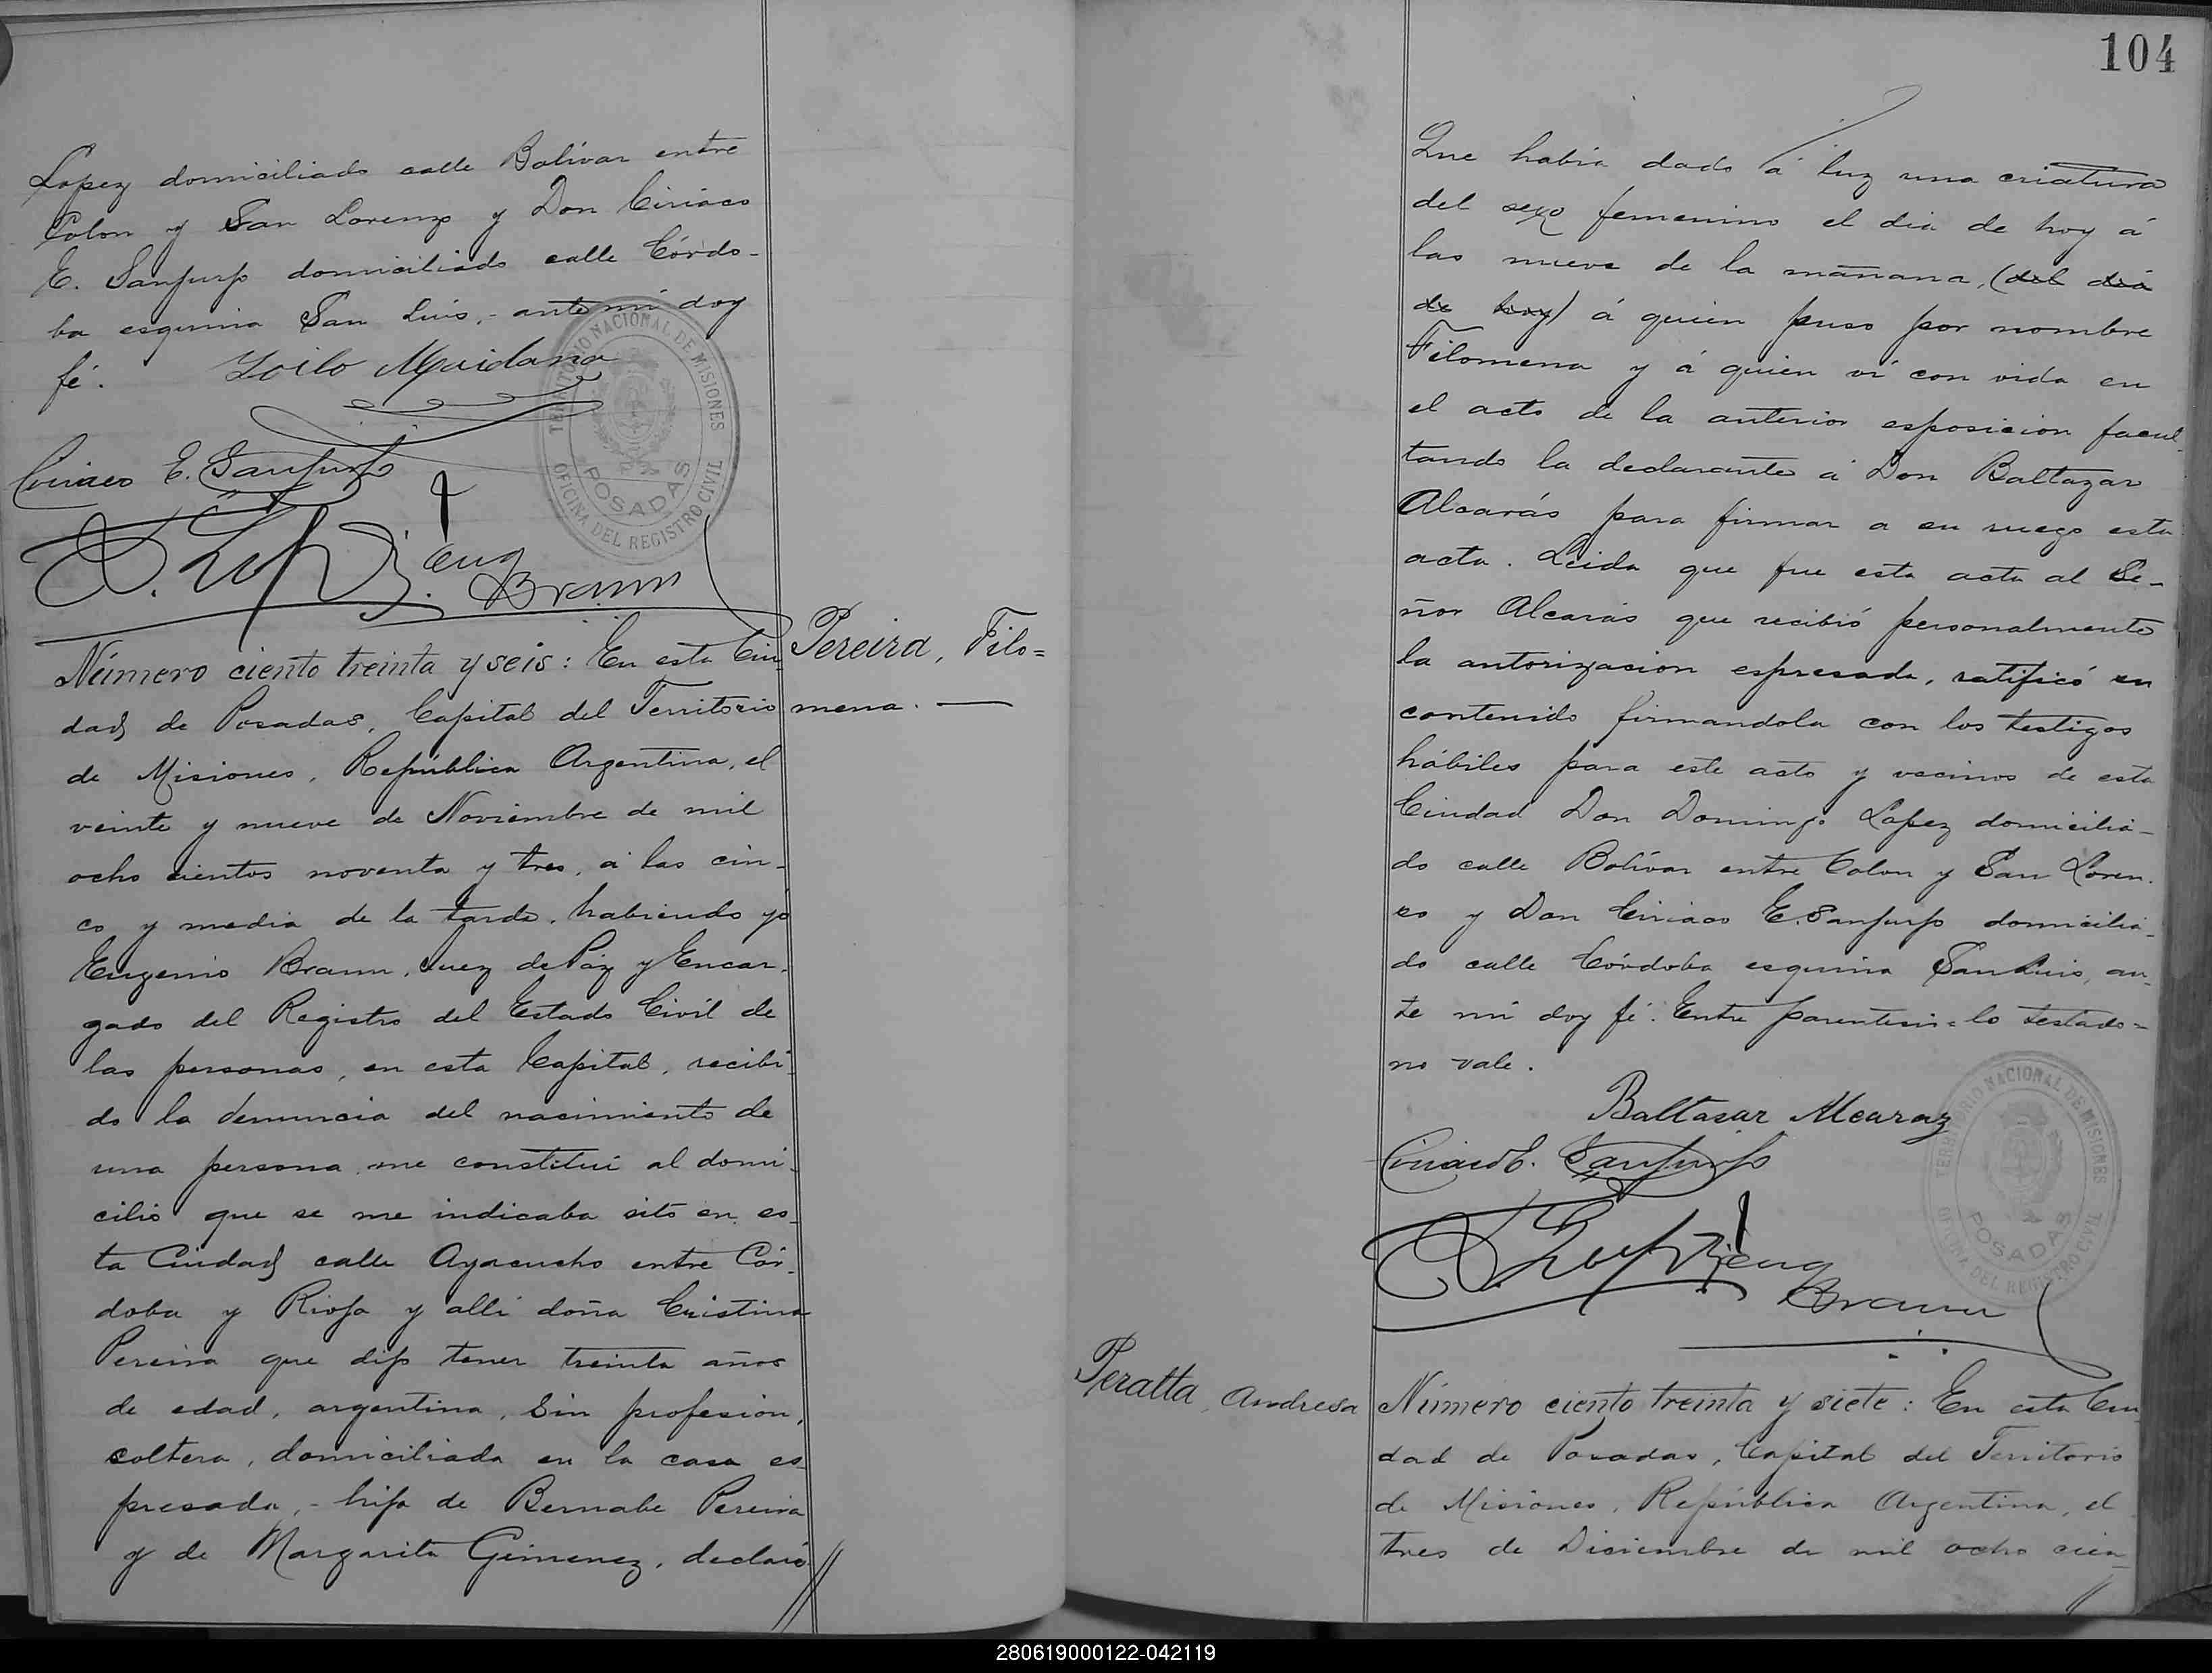 Lopez domiciliado calle Bolívar entre
Colon y San Lorenzo y Don Ciriaco
E. Sanjurjo domiciliado calle Córdo-
ba esquina San Luis, - ante mi doy
fé.
Zoilo Maidana
Ciriaco E. Sanjurjo
Eug
Braun
TERRITORIO NACIONAL DE MISIONES
POSADAS
OFICINA DEL REGISTRO CIVIL
Pereira, Filo=
mena. —
Número ciento treinta y seis: En esta Ciu
dad de Posadas, Capital del Territorio
de Misiones, República Argentina, el
veinte y nueve de Noviembre de mil
ocho cientos noventa y tres, á las cin-
co y media de la tarde, habiendo yo
Eugenio Braun, Juez de Paz y Encar-
gado del Registro del Estado Civil de
las personas, en esta Capital, recibi-
do la denuncia del nacimiento de
una persona, me constituí al domi-
cilio que se me indicaba sito en es-
ta Ciudad calle Ayacucho entre Cór-
doba y Rioja y alli doña Cristina
Pereira que dijo tener treinta años
de edad, argentina, sin profesion,
soltera, domiciliada en la casa es-
presada, - hija de Bernabe Pereira
y de Margarita Gimenez, declaró
104
Que habia dado á luz una criatura
del sexo femenino el dia de hoy á
las nueve de la mañana, (del dia
de hoy) á quien puso por nombre
Filomena y á quien ví con vida en
el acto de la anterior esposicion facul-
tando la declarante á Don Baltazar
Alcarás para firmar a su ruego esta
acta. Leida que fue esta acta al Se-
ñor Alcarás que recibió personalmente
la autorizacion espresada, ratificó su
contenido firmandola con los testigos
hábiles para este acto y vecinos de esta
Ciudad Don Domingo Lopez domicilia-
do calle Bolívar entre Colon y San Loren-
zo y Don Ciriaco E. Sanjurjo domicilia-
do calle Córdoba esquina San Luis, an-
te mi doy fé. Entre parentesis = lo testado =
no vale.
Baltasar Alcaraz
Ciriaco E. Sanjurjo
Eug
Braun
TERRITORIO NACIONAL DE MISIONES
POSADAS
OFICINA DEL REGISTRO CIVIL
Peralta, Andresa
Número ciento treinta y siete: En esta Ciu
dad de Posadas, Capital del Territorio
de Misiones, República Argentina, el
tres de Diciembre de mil ocho cien-
280619000122-042119